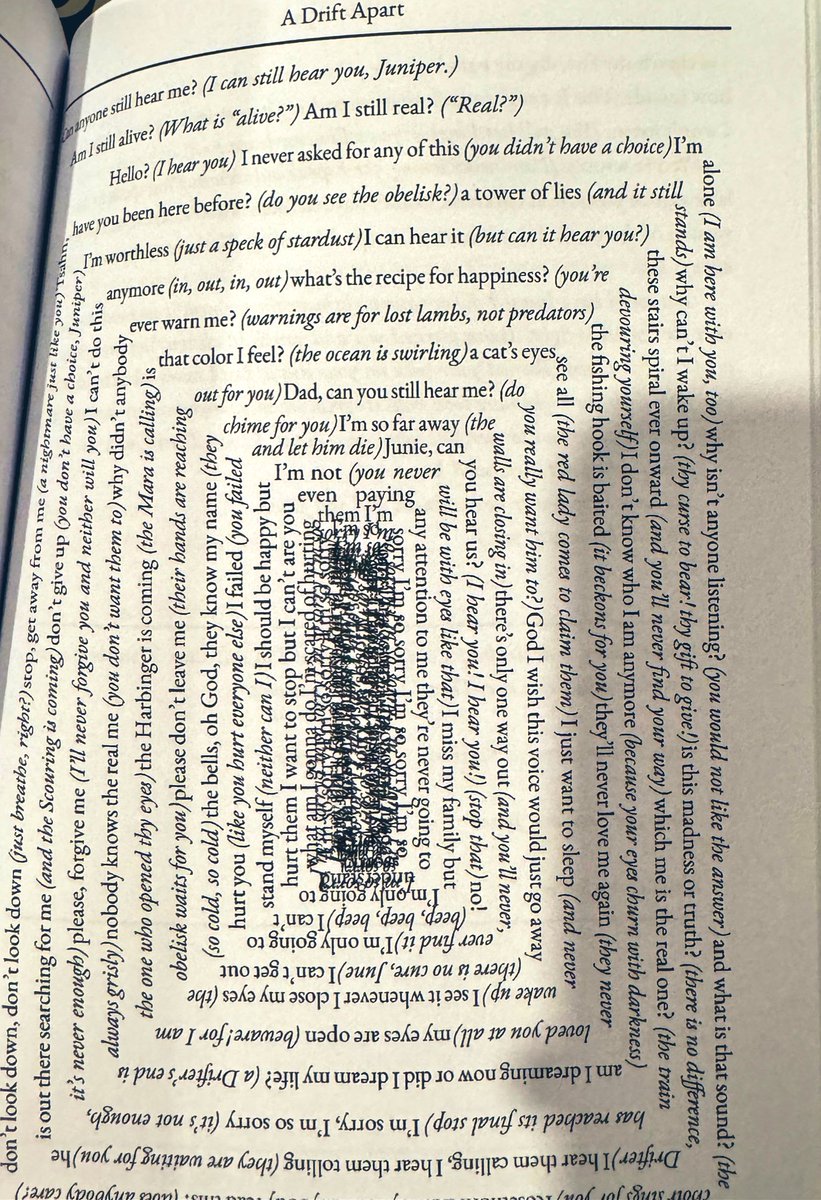 A Drift Apart
Can anyone still hear me? (I can still hear you, Juniper.)
Am I still alive? (What is “alive?”) Am I still real? (“Real?”)
Hello? (I hear you) I never asked for any of this (you didn’t have a choice) I’m
alone (I am here with you, too) why isn’t anyone listening? (you would not like the answer) and what is that sound? (the
choir sings for you) (does anybody care?)
don’t look down, don’t look down (just breathe, right?) stop, get away from me (a nightmare just like you) Tsahn,
have you been here before? (do you see the obelisk?) a tower of lies (and it still
stands) why can’t I wake up? (thy curse to bear! thy gift to give!) is this madness or truth? (there is no difference,
Drifter) I hear them calling, I hear them tolling (they are waiting for you) he
is out there searching for me (and the Scouring is coming) don’t give up (you don’t have a choice, Juniper)
I’m worthless (just a speck of stardust) I can hear it (but can it hear you?)
these stairs spiral ever onward (and you’ll never find your way) which me is the real one? (the train
has reached its final stop) I’m sorry, I’m so sorry (it’s not enough,
it’s never enough) please, forgive me (I’ll never forgive you and neither will you) I can’t do this
anymore (in, out, in, out) what’s the recipe for happiness? (you’re
devouring yourself) I don’t know who I am anymore (because your eyes churn with darkness)
am I dreaming now or did I dream my life? (a Drifter’s end is
always grisly) nobody knows the real me (you don’t want them to) why didn’t anybody
ever warn me? (warnings are for lost lambs, not predators)
the fishing hook is baited (it beckons for you) they’ll never love me again (they never
loved you at all) my eyes are open (beware! for I am
the one who opened thy eyes) the Harbinger is coming (the Mara is calling) is
that color I feel? (the ocean is swirling) a cat’s eyes
see all (the red lady comes to claim them) I just want to sleep (and never
wake up) I see it whenever I close my eyes (the
obelisk waits for you) please don’t leave me (their hands are reaching
out for you) Dad, can you still hear me? (do
you really want him to?) God I wish this voice would just go away
(there is no cure, June) I can’t get out
(so cold, so cold) the bells, oh God, they know my name (they
chime for you) I’m so far away (the
walls are closing in) there’s only one way out (and you’ll never,
ever find it) I’m only going to
hurt you (like you hurt everyone else) I failed (you failed
and let him die) Junie, can
you hear us? (I hear you! I hear you!) (stop that) no!
(beep, beep, beep) I can’t
stand myself (neither can I) I should be happy but
I’m not (you never
will be with eyes like that) I miss my family but
I’m only going to
hurt them I want to stop but I can’t are you
even paying
any attention to me they’re never going to
understand
what am I gonna do I’m scared of hurting
them I’m
sorry I’m so sorry I’m so sorry I’m so sorry I’m so